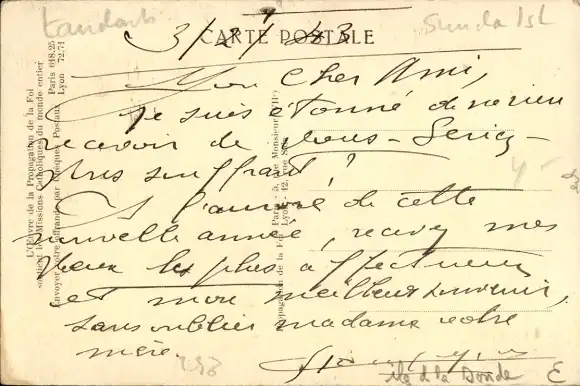 CARTE POSTALE
Mon Cher Ami,
Je suis étonné de ne rien
recevoir de vous - Seriez-
vous souffrant ?
A l'aurore de cette
nouvelle année, recevez mes
vœux les plus affectueux
et mon meilleur souvenir,
sans oublier madame votre
mère.
Sunda Isl
île d la Sonde
E
193
L'Œuvre de la Propagation de la Foi
soutient les Missions Catholiques du monde entier
Envoyer votre offrande par Chèques Postaux
Paris 618.25
Lyon 72.71
Propagation de la Foi
Paris - 5, rue Monsieur (VIIe)
Lyon - 12, rue Sala